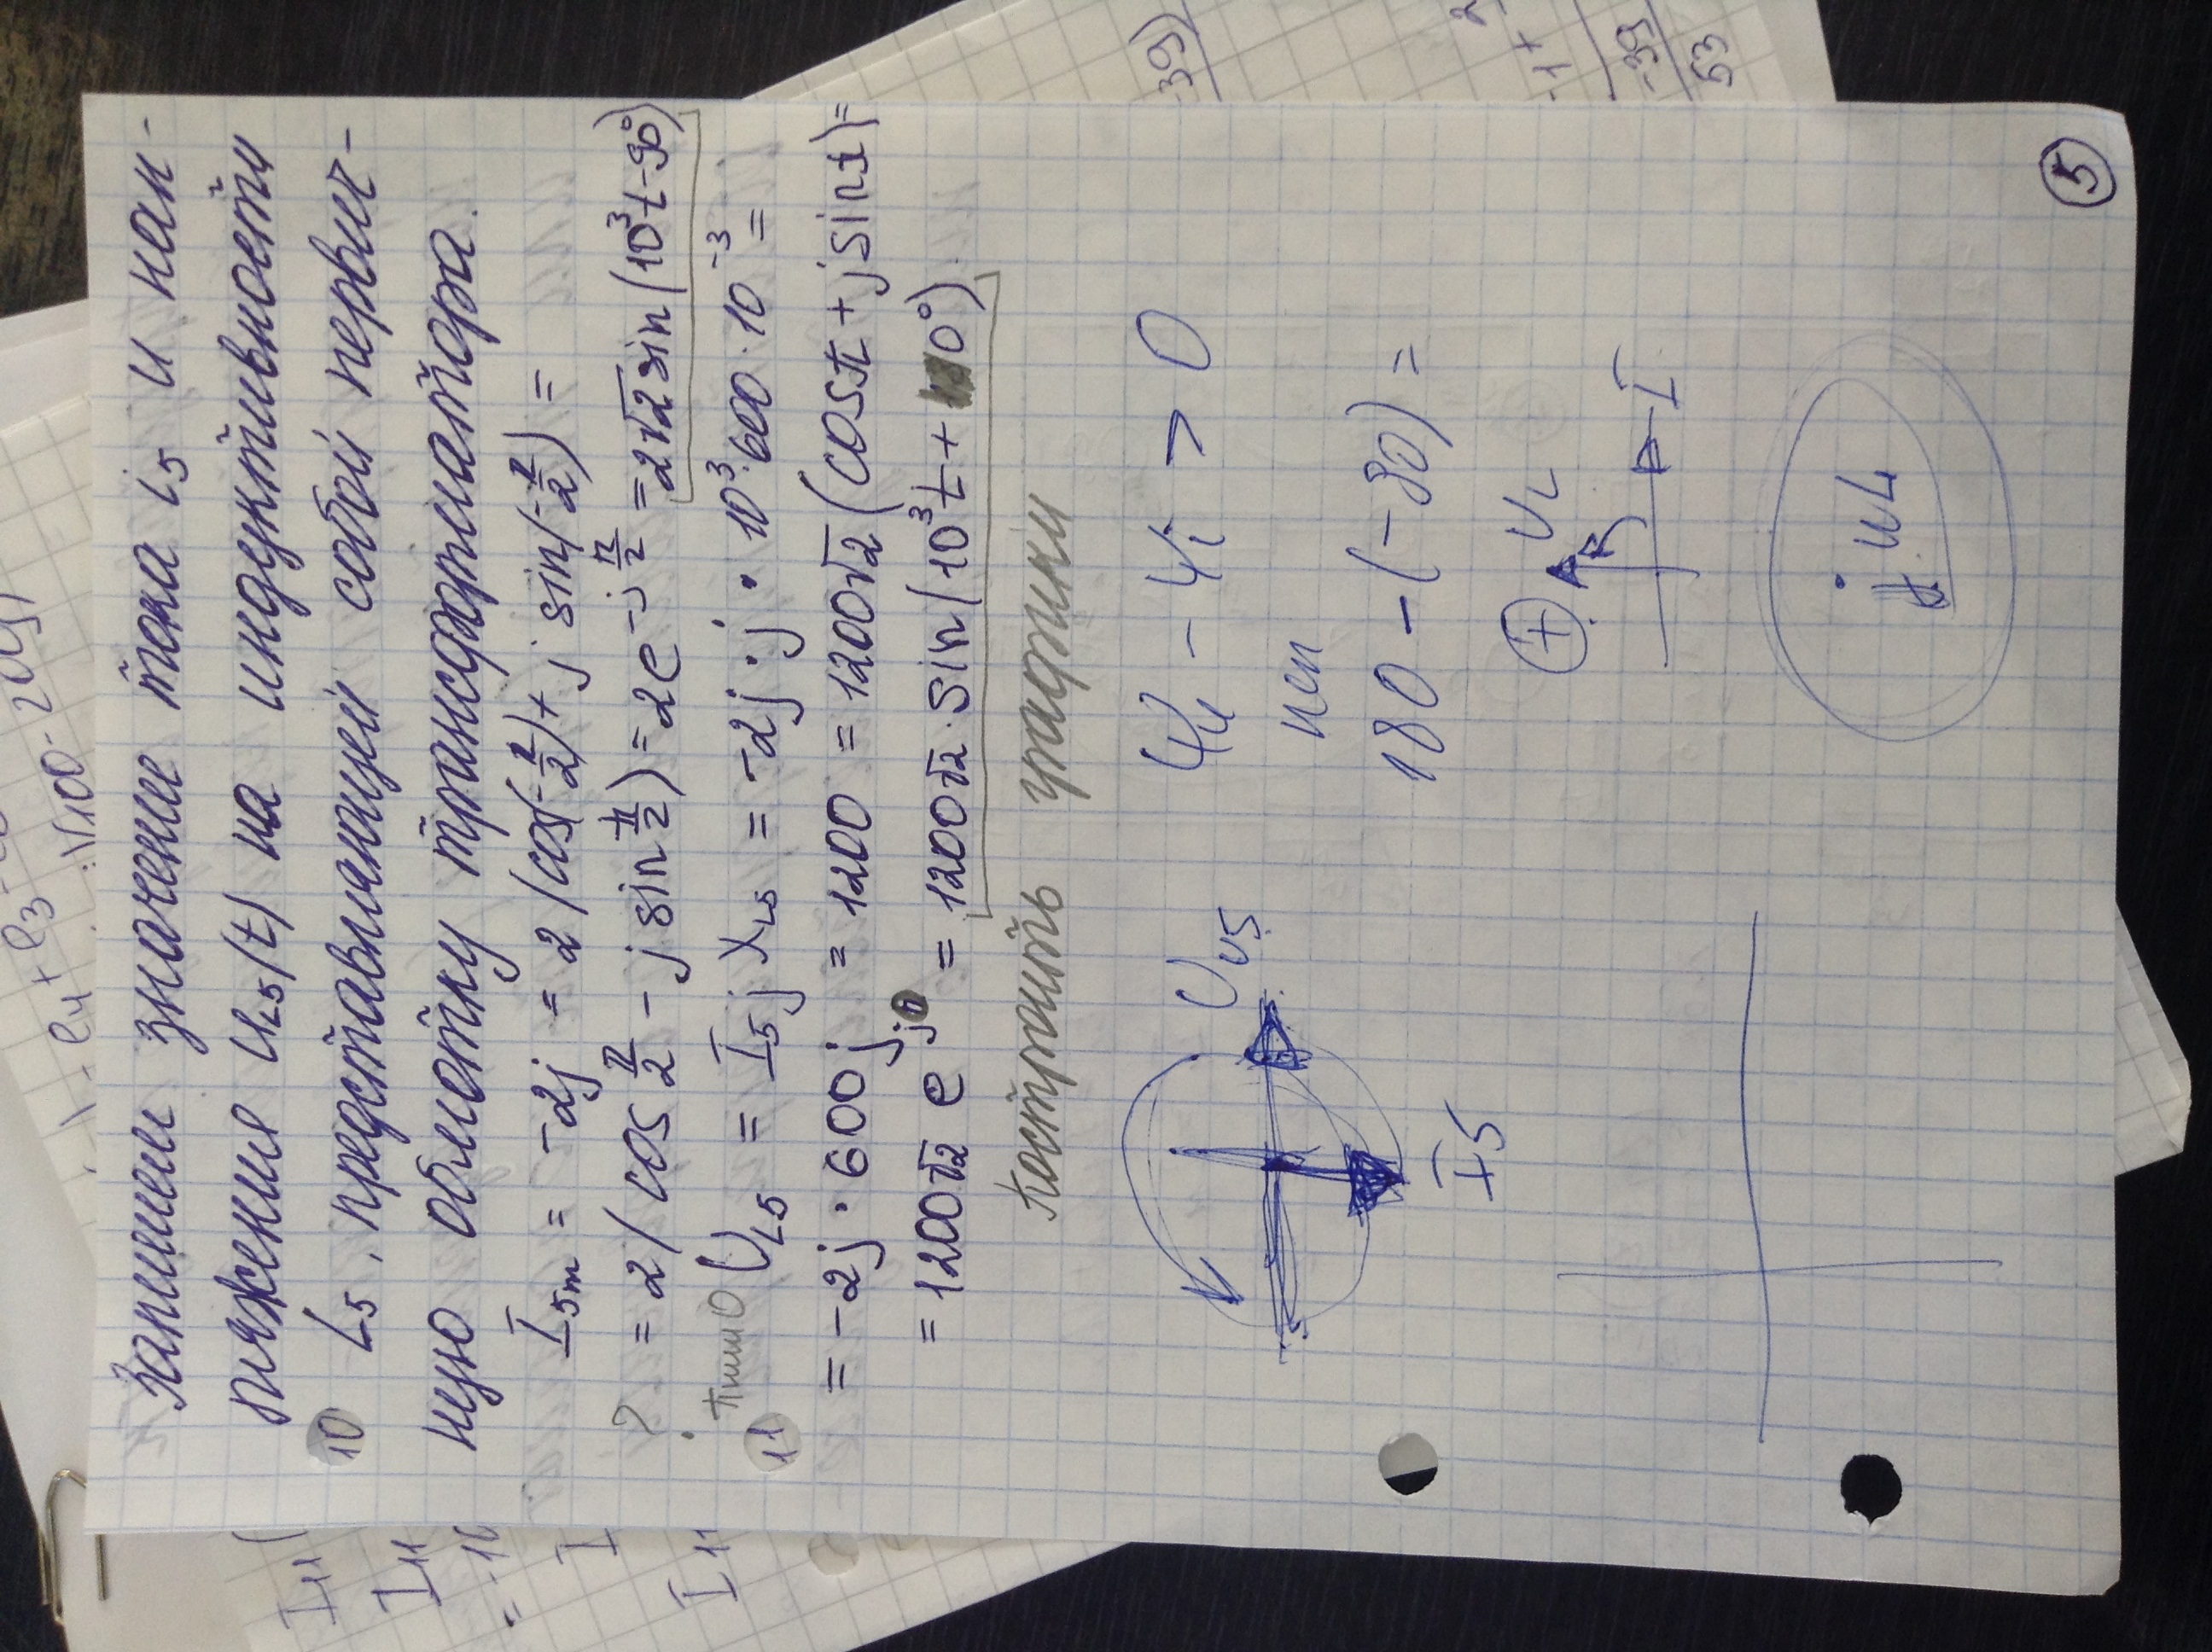 Запишем значение тока i5 и нап-
ряжения uL5(t) на индуктивности
10 L5, представляющей собой первич-
ную обмотку трансформатора.
I5m = -2j = 2(cos(-π/2)+j sin(-π/2) =
? = 2(cos π/2 - j sin π/2) = 2e^-j π/2 = 2√2 sin(10³t-90°)
11 Пишио UL5 = I5 j XL5 = -2j·j·10³·600·10⁻³ =
= -2j·600j = 1200 = 1200√2(cosπ + jsinπ)=
= 1200√2 e^j0 = 1200√2·sin(10³t+0°)
Построить графики
φu - φi > 0
180 - (-90) =
UL5
I5
+ UL
I
jωL
5
I11(
I11
= -10
I
I11
-e4+e3
√100
-39)
-1+
-39
53